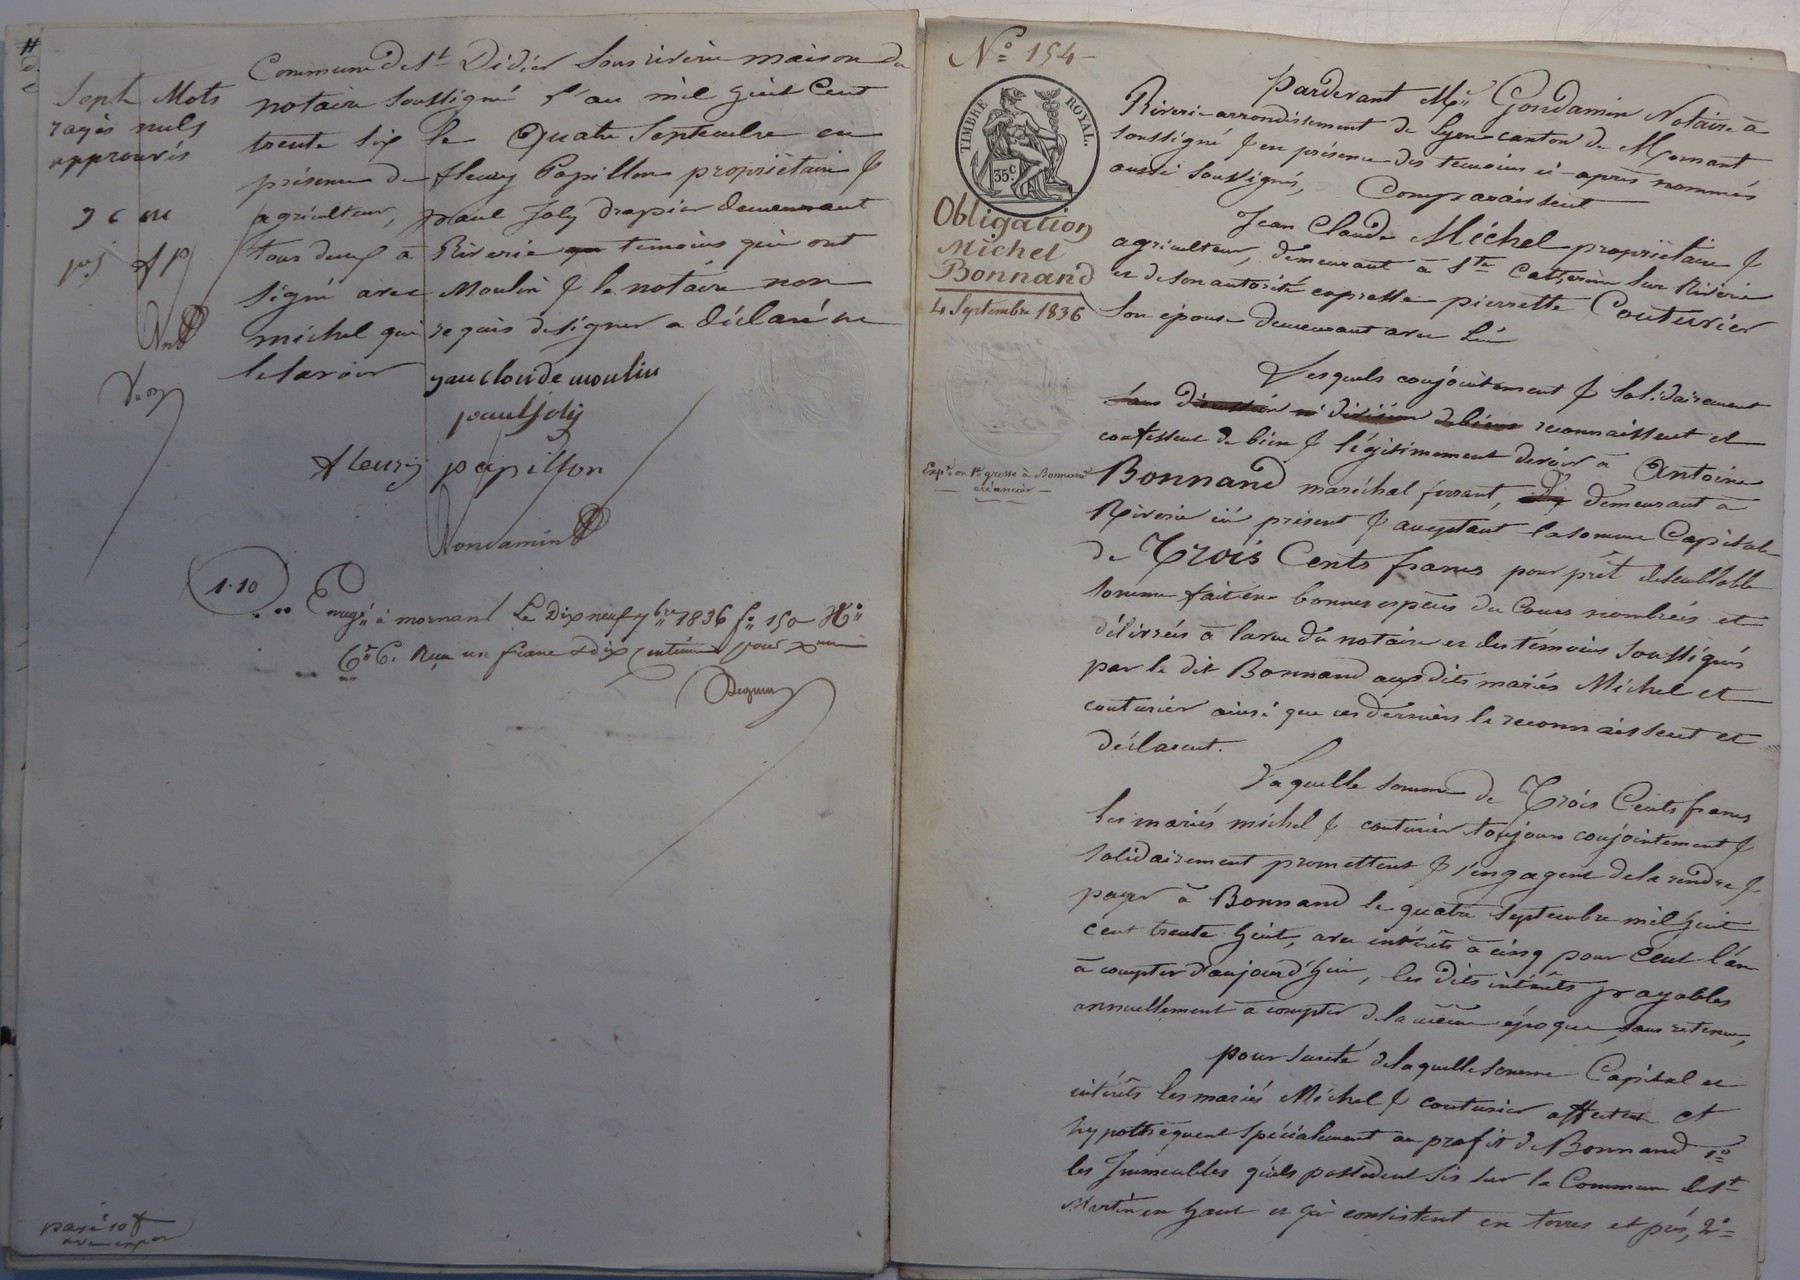 Sept Mots
rayés nuls
approuvés
J C M
p. J f p
Commune de St Didier sous riverie maison du
notaire soussigné l'an mil huit Cent
trente six le Quatre Septembre en
présence de fleury Papillon propriétaire &
agriculteur, paul Joly drapier demeurant
tous deux à Riverie temoins qui ont
signé avec Moulin & le notaire non
michel qui requis de signer a déclaré ne
le savoir
jauclaude moulin
paul joly
fleury papillon
Gondamin
1.10
Enregé à mornant Le Dix neuf 7bre 1836 fo 150 Ro
Co 6. Reçu un franc & dix centimes pour Xme
payé 10 f
No 154
TIMBRE ROYAL.
35 c
Obligation
Michel
Bonnand
4 Septembre 1836
Expé en 1re grosse à Bonnand
créancier
Pardevant Me Gondamin Notaire à
Riverie arrondissement de Lyon canton de Mornant
soussigné & en présence des temoins ci-après nommés
aussi soussignés, Comparaissent
Jean Claude Michel propriétaire &
agriculteur, demeurant à Ste Catherine sur Riverie
et de son autorité expresse pierrette Couturier
son épouse demeurant avec lui
Lesquels conjointement & solidairement
sans discussion ni division de biens reconnaissent et
confessent de bien & légitimement devoir à Antoine
Bonnand maréchal ferrant, demeurant à
Riverie ici présent & acceptant la somme Capitale
de Trois Cents francs pour prêt de semblable
somme fait en bonnes espèces du Cours nombrées et
délivrées à la vue du notaire et des témoins soussignés
par le dit Bonnand aux dits mariés Michel et
couturier ainsi que ces derniers le reconnaissent et
déclarent.
Laquelle somme de Trois Cents francs
les mariés michel & couturier toujours conjointement &
solidairement promettent & s'engagent de la rendre &
payer à Bonnand le quatre septembre mil huit
cent trente huit, avec intérêts à cinq pour Cent l'an
à compter d'aujourd'hui, les dits intérêts payables
annuellement à compter de la même époque, sans retenue,
pour sureté de laquelle somme Capital et
intérêts les mariés Michel & couturier affectent et
hypothèquent spécialement au profit de Bonnand 1o
les Immeubles qu'ils possèdent sis sur la Commune de St
Martin en haut et qui consistent en terres et prés, 2o